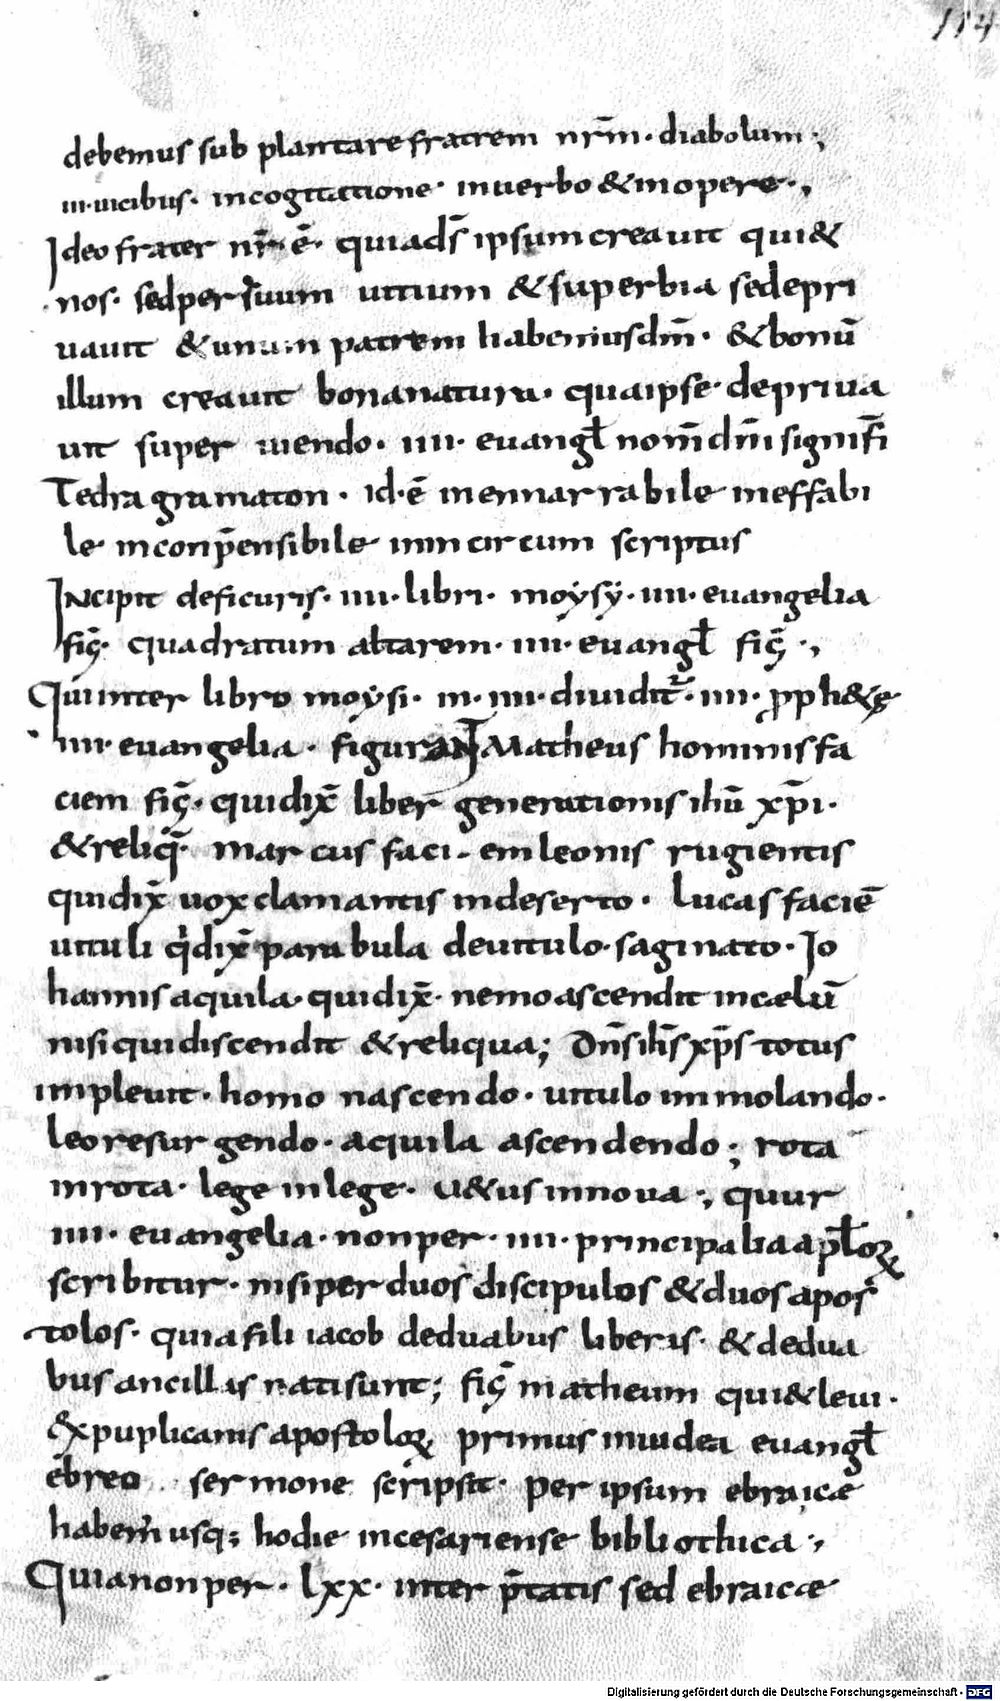 114
debemus sub plantare fratrem nr̄m · diabolum ;
iii · uicibus · incogitatione · inuerbo & inopere · ,
Ideo frater nr̄ · ē · quiads̄ ipsum creauit qui&
nos · sed per suum uitium & superbia se depri
uauit & unum patrem habemus dm̄ · & bonū
illum creauit bona natura · qua ipse depriua
uit super uiendo · iiii · euangl̄ nom̄ dm̄ signif̄i
Tedragramaton · id · ē inennarrabile ineffabi
le inconp̄ensibile inin circum scriptus
Incipit deficuris · iiii · libri · moysy · iiii · euangelia
fiḡ · quadratum altarem · iiii · euangl̄ fiḡ · ,
Quinter libro moysi · in · iiii · diuidit̄ · iiii · pp h&ę
iiii · euangelia · figurant Matheus hominis fa
ciem fiḡ · quidix̄ liber generationis ihū xp̄i ·
& reliq̄ · marcus faci · em leonis rugientis
quidix̄ uox clamantis indeserto · lucas faciē
uituli qidix̄ parabula deuitulo · saginato · Io
hannis aquila · quidix̄ · nemo ascendit incælū
nisi quidiscendit & reliqua ; Dn̄s ih̄s xp̄s totus
impleuit · homo nascendo · uitulo immolando ·
leo resurgendo · aquila ascendendo ; rota
inrota · lege inlege · u&us innoua · , quur
iiii · euangelia · non per · iiii · principalia apl̄oꝝ
scribitur · nisi per duos discipulos & duos apos
tolos · quia fili iacob deduabus liberis · & dedua
bus ancillis nati sunt ; fiḡ matheum qui & leui ·
Ex puplicanis apostoloꝝ primus iniudea euangl̄
ebreo sermone scripsit · per ipsum ebraicæ
habem̄ usq; hodie incesariense bibliothica · ,
Quia non per · lxx · inter p̄tatis sed ebraicæ
Digitalisierung gefördert durch die Deutsche Forschungsgemeinschaft - DFG